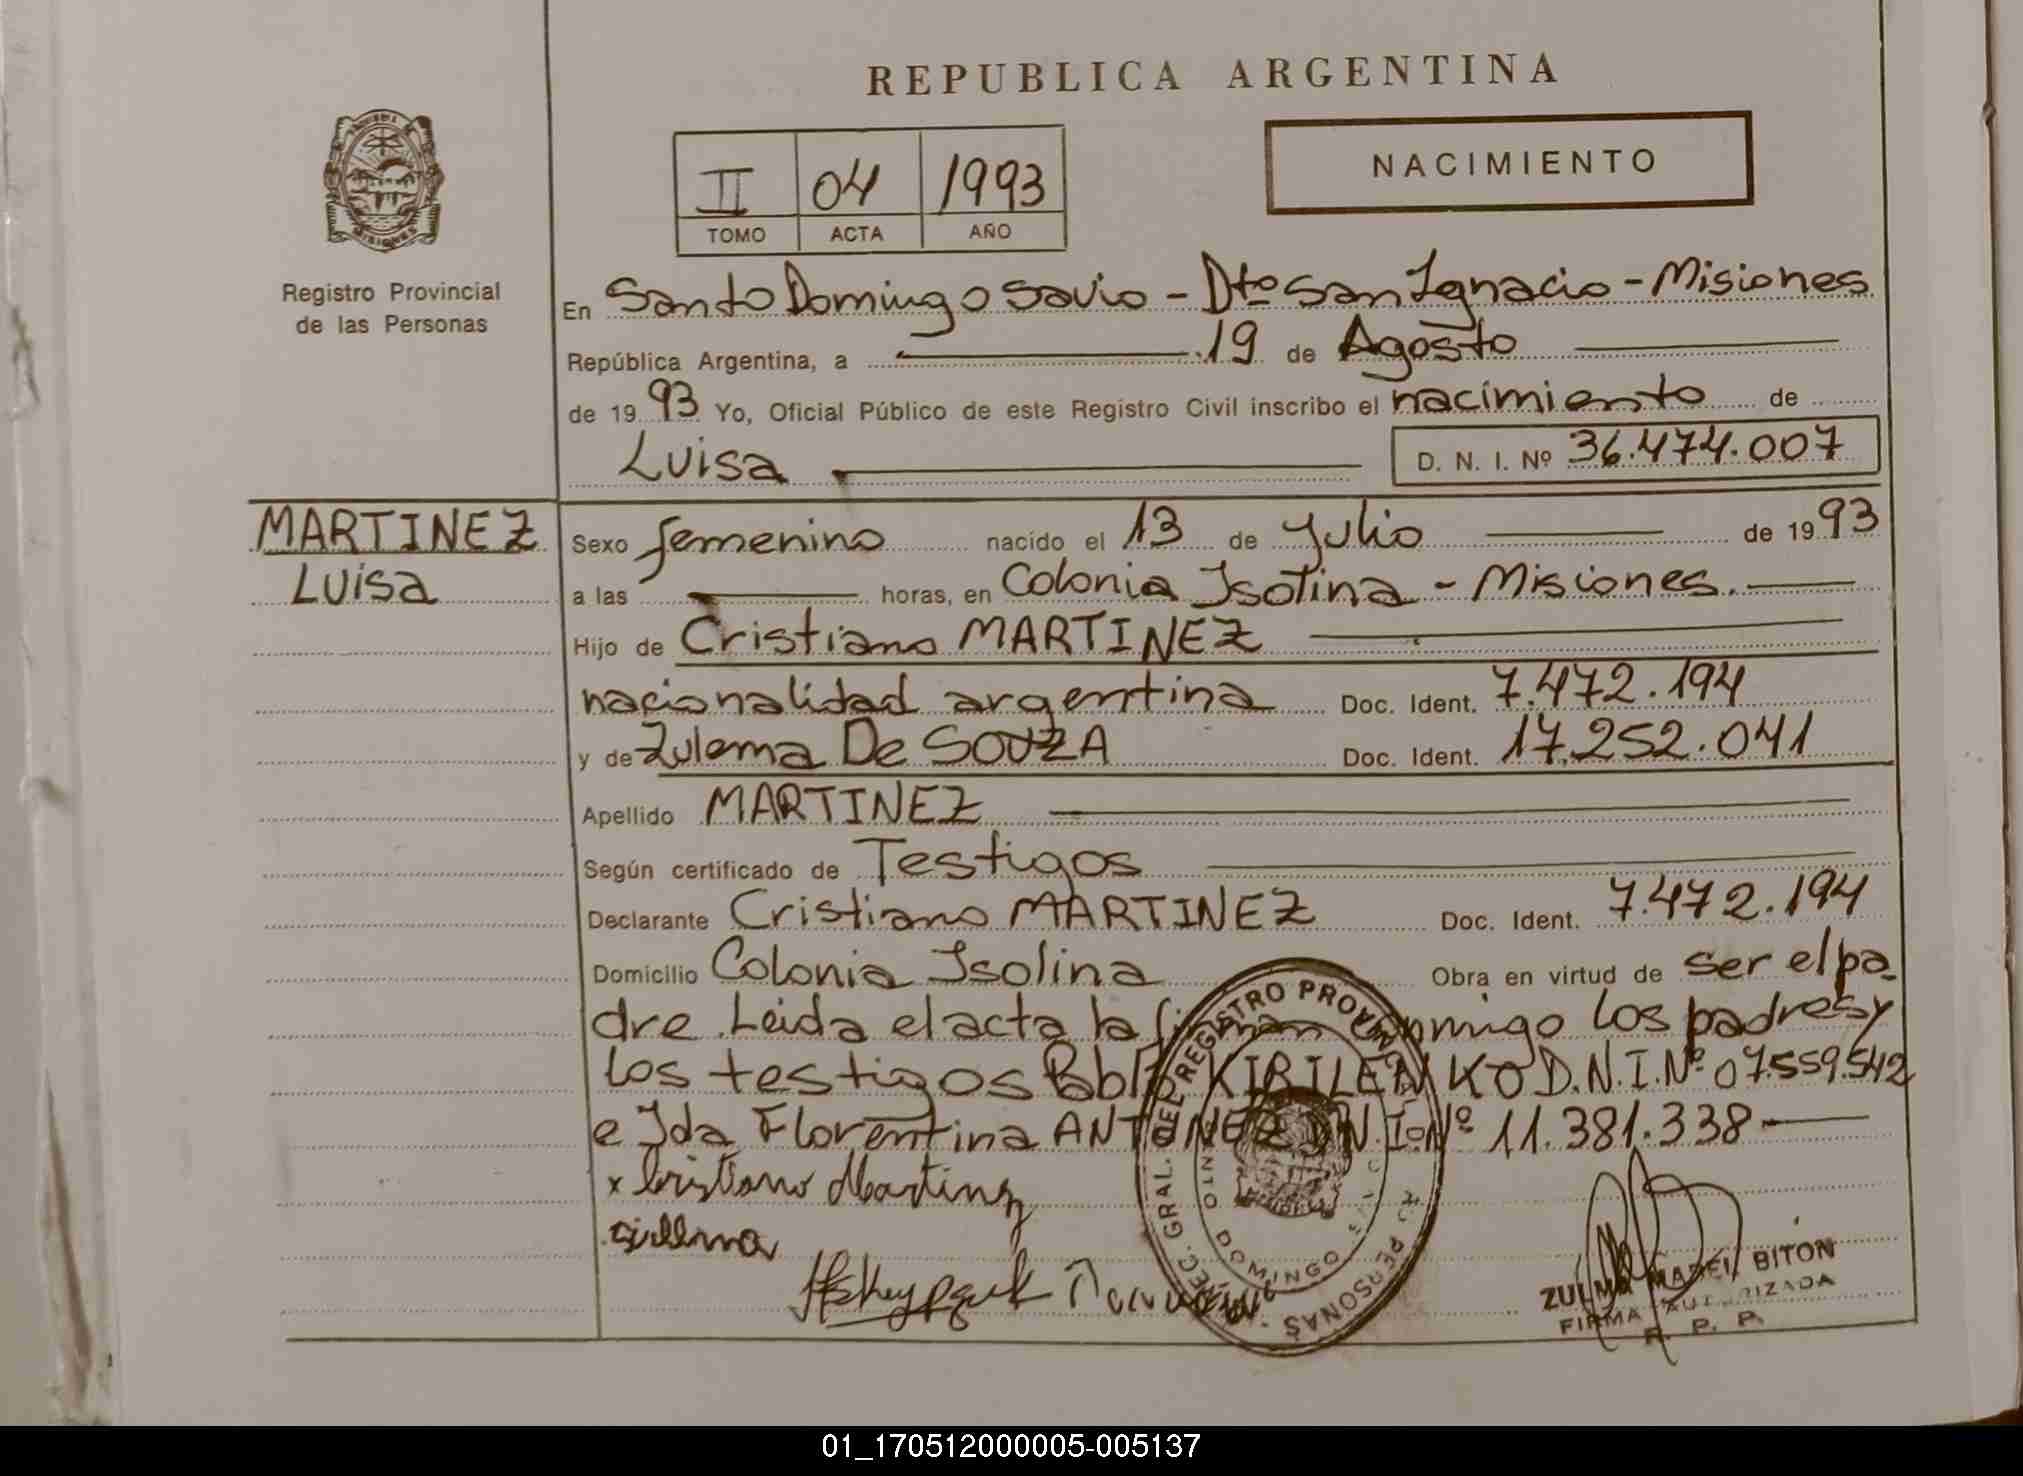 REPUBLICA ARGENTINA
NACIMIENTO
II 04 1993
TOMO ACTA AÑO
Registro Provincial
de las Personas
En Santo Domingo Savio - Dto San Ignacio - Misiones
República Argentina, a 19 de Agosto
de 1993 Yo, Oficial Público de este Registro Civil inscribo el nacimiento de
Luisa D. N. I. Nº 36.474.007
MARTINEZ
Luisa
Sexo femenino nacido el 13 de Julio de 1993
a las horas, en Colonia Isolina - Misiones.
Hijo de Cristiano MARTINEZ
nacionalidad argentina Doc. Ident. 7.472.194
y de Zulema De SOUZA Doc. Ident. 17.252.041
Apellido MARTINEZ
Según certificado de Testigos
Declarante Cristiano MARTINEZ Doc. Ident. 7.472.194
Domicilio Colonia Isolina Obra en virtud de ser el pa
dre. Leida el acta la firman conmigo los padres y
los testigos Pablo KIRILENKO D.N.I.Nº 07.559.542
e Ida Florentina ANTUNEZ D.N.I.Nº 11.381.338
x Cristiano Martinez
ZULMA MABEL BITON
FIRMA AUTORIZADA
R. P. P.
DOMINGO
01_170512000005-005137